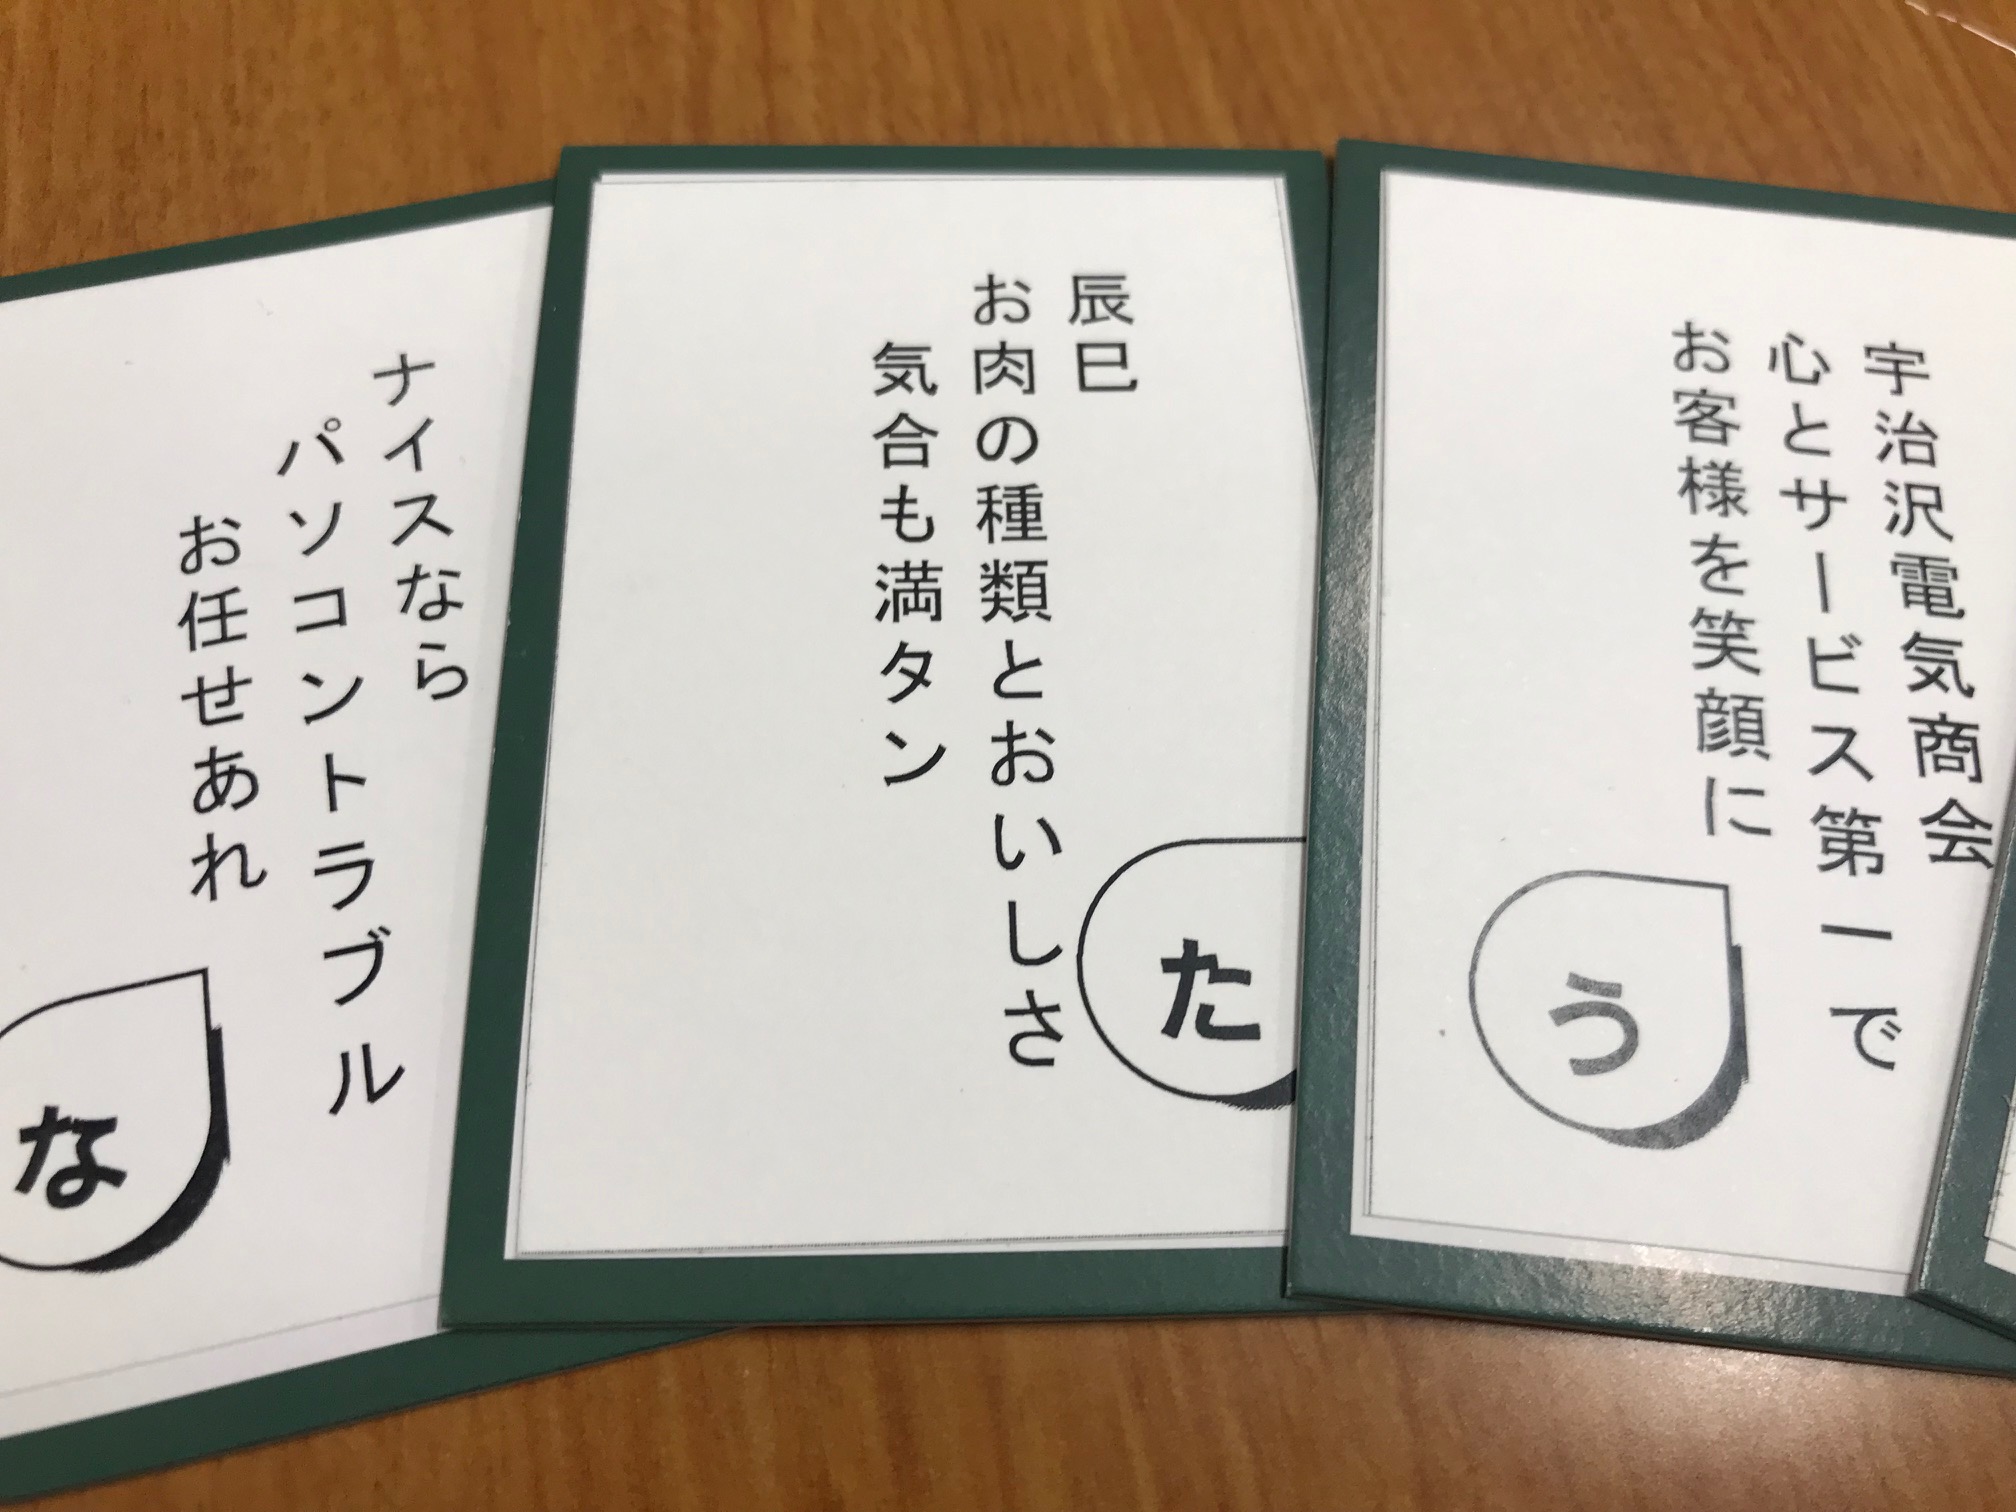 宇治沢電気商会
心とサービス第一で
お客様を笑顔に
う
辰巳
お肉の種類とおいしさ
気合も満タン
た
ナイスなら
パソコントラブル
お任せあれ
な